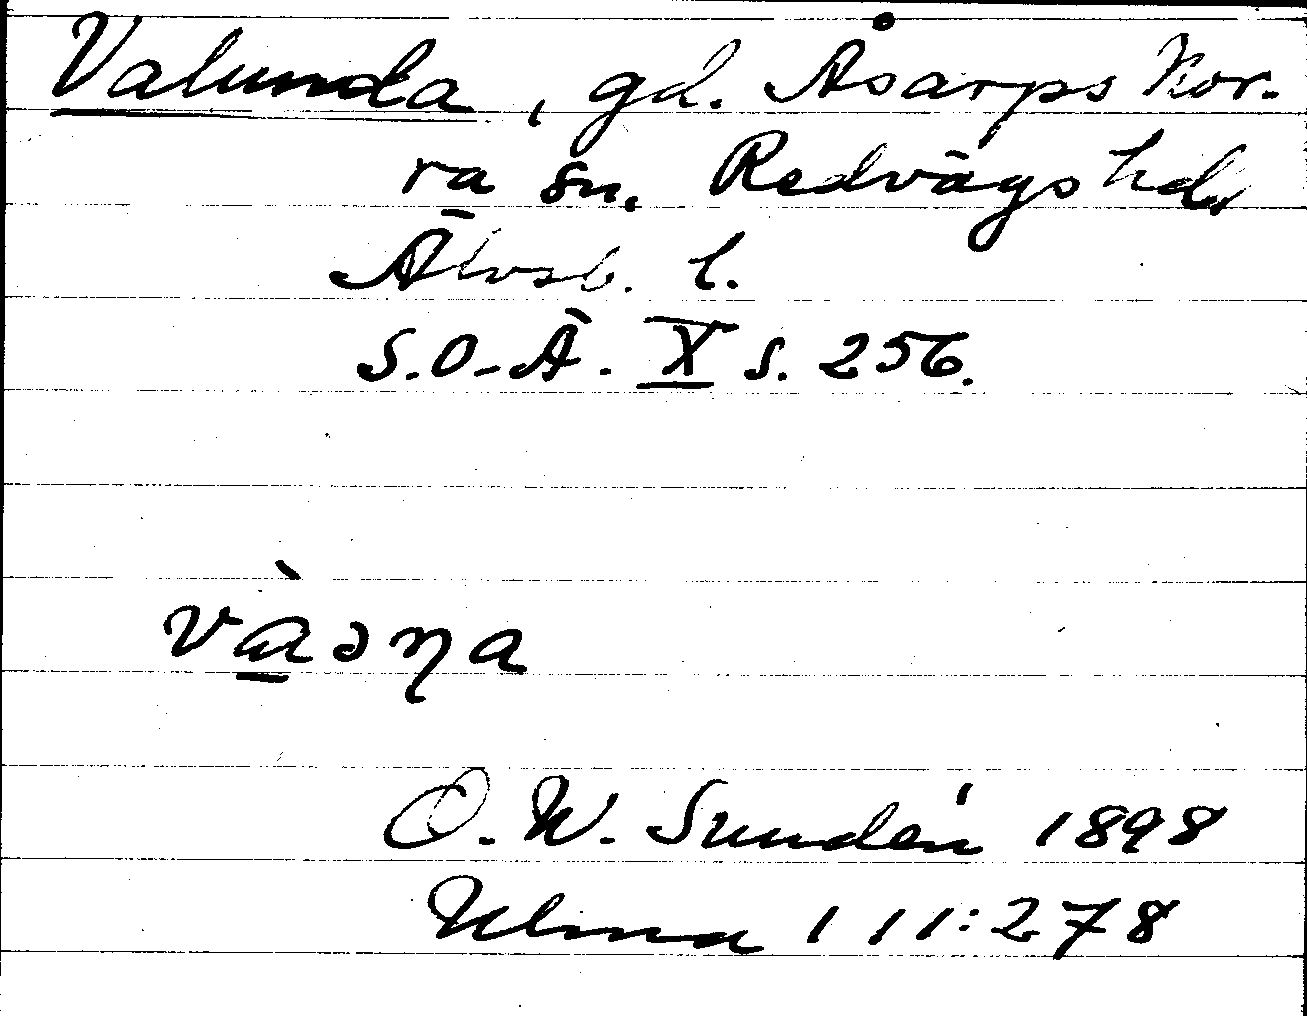 Valunda, gd. Åsarps Nor-
ra sn. Redvägs hd.
Älvsb. l.
S.O-Ä. X s. 256.
và̱əŋa
O. W. Sundén 1898
Ulma 111:278